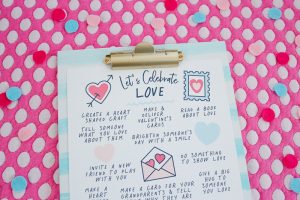 Let's Celebrate
LOVE
CREATE A HEART
SHAPED CRAFT
MAKE &
DELIVER
VALENTINE'S
CARDS
READ A BOOK
ABOUT LOVE
TELL SOMEONE
WHAT YOU LOVE
ABOUT THEM
BRIGHTEN SOMEONE'S
DAY WITH A SMILE
INVITE A NEW
FRIEND TO PLAY
WITH YOU
DO SOMETHING
TO SHOW LOVE
MAKE A
HEART
MAKE A CARD FOR YOUR
GRANDPARENTS & TELL
WHY THEY ARE
GIVE A BIG
HUG TO
SOMEONE
YOU LOVE